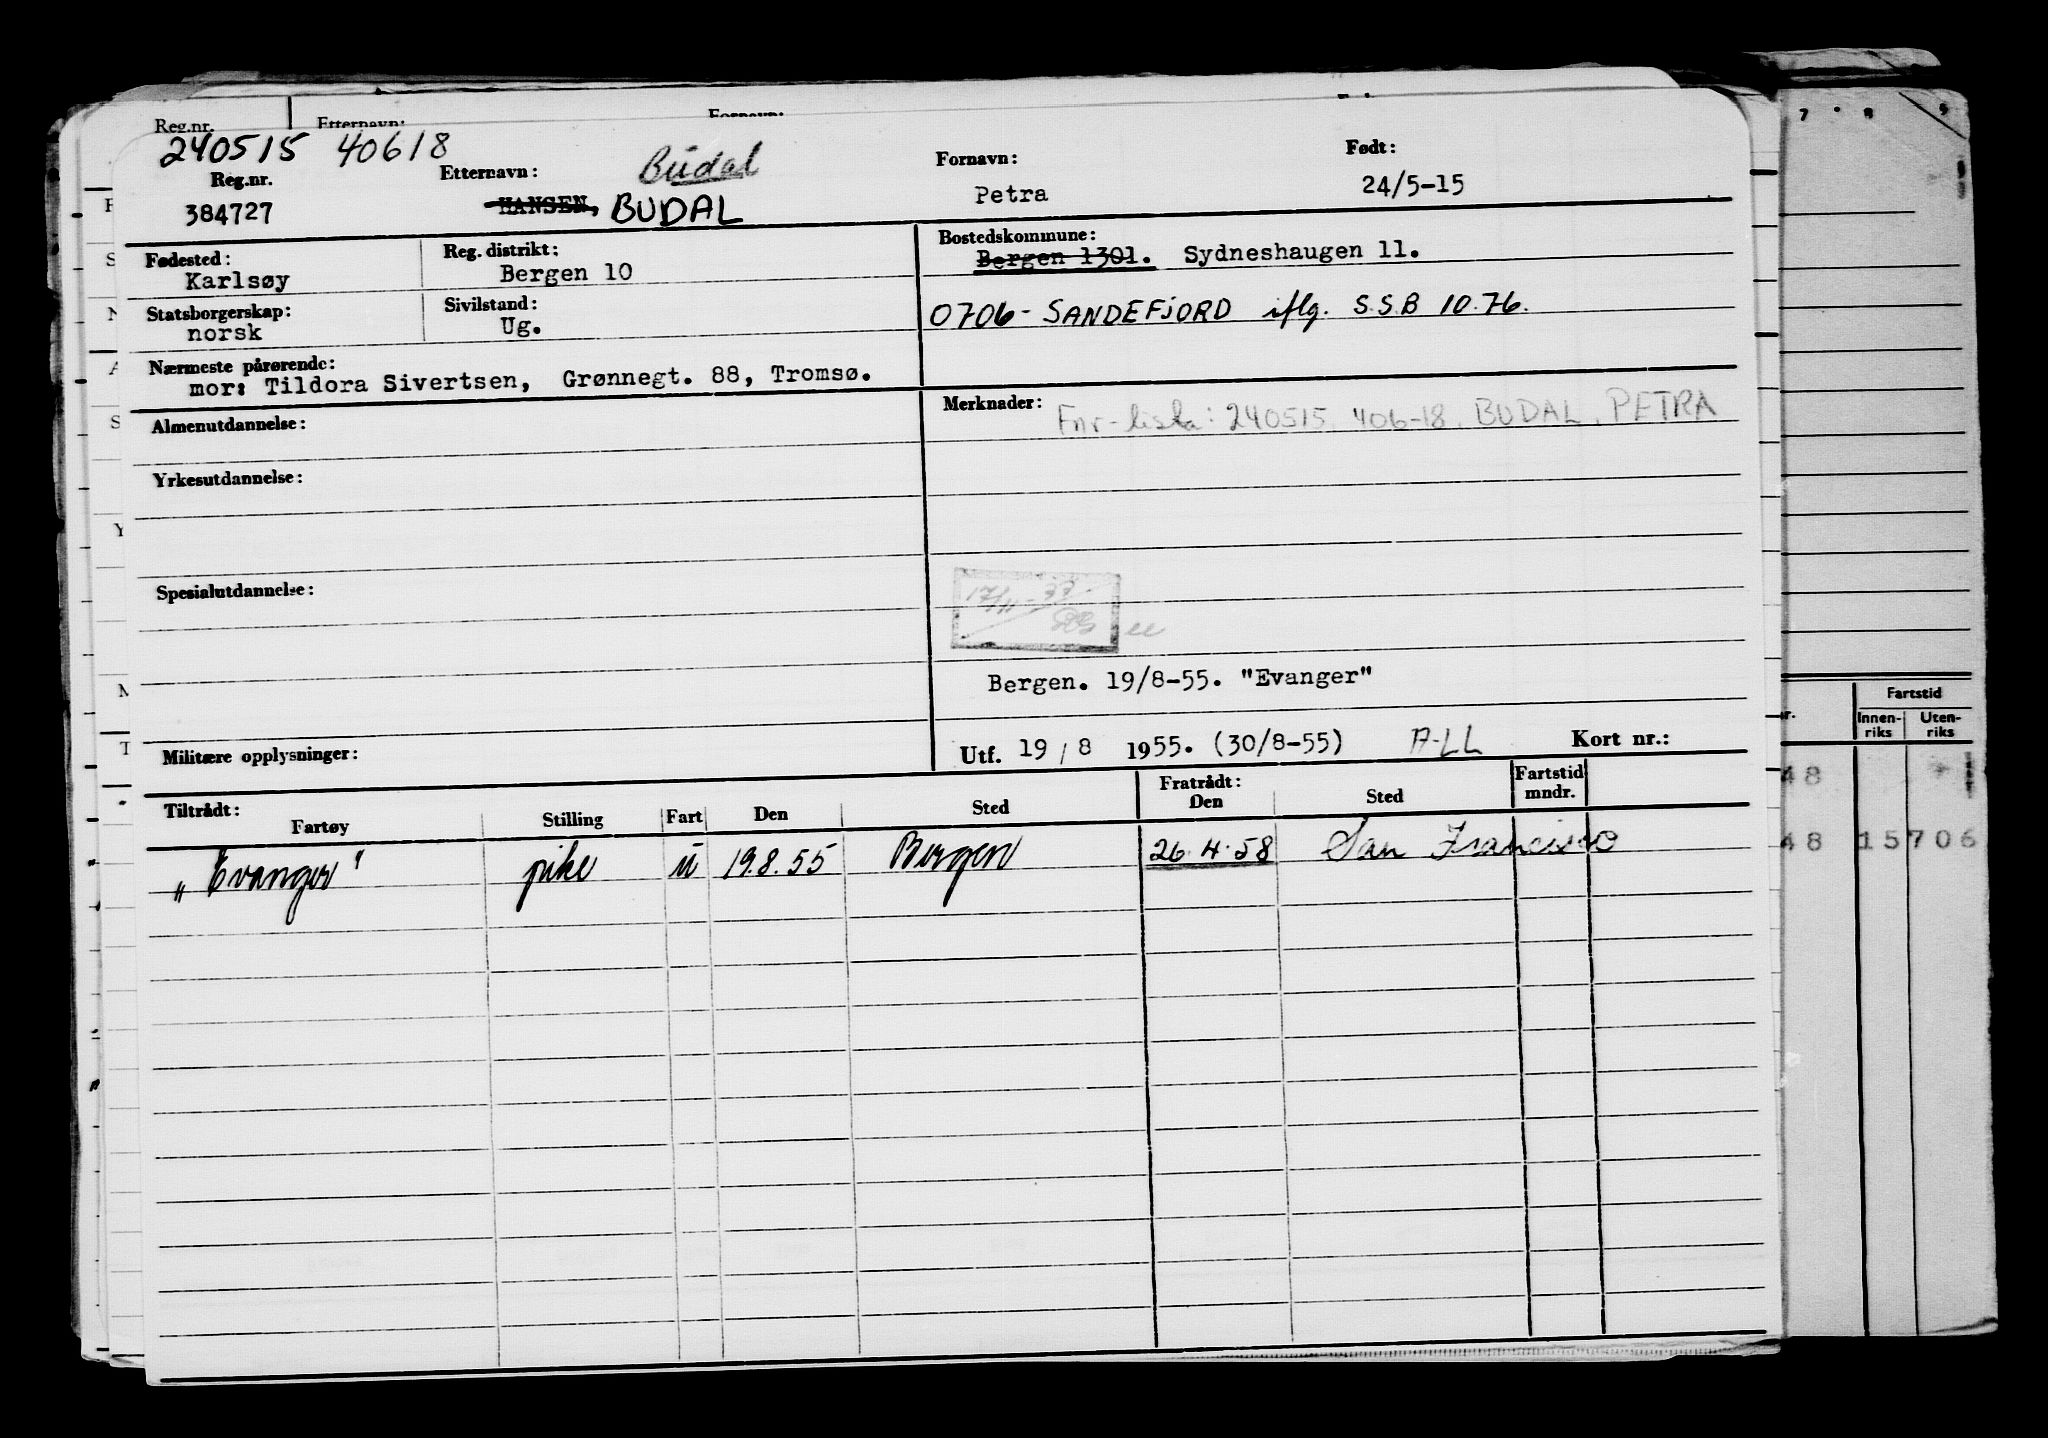 Reg.nr. Etternavn: Fornavn:
240515 40618
Reg.nr. Etternavn: Budal Fornavn: Født:
384727 HANSEN, BUDAL Petra 24/5-15
Fødested: Reg. distrikt: Bostedskommune:
Karlsøy Bergen 10 Bergen 1301. Sydneshaugen 11.
Statsborgerskap: Sivilstand:
norsk Ug. 0706- SANDEFJORD iflg. S.S.B 10.76.
Nærmeste pårørende:
mor: Tildora Sivertsen, Grønnegt. 88, Tromsø.
Almenutdannelse: Merknader: Fnr-liste: 240515. 406-18. BUDAL, PETRA
Yrkesutdannelse:
Spesialutdannelse:
Bergen. 19/8-55. "Evanger"
Militære opplysninger: Utf. 19 / 8 1955. (30/8-55) A-LL Kort nr.:
Tiltrådt: Fratrådt: Fartstid
Fartøy Stilling Fart Den Sted Den Sted mndr.
"Evanger" pike u 19.8.55 Bergen 26.4.58 San Francisco
7 8 9
Fartstid
Innen- Uten-
riks riks
48
48 15706